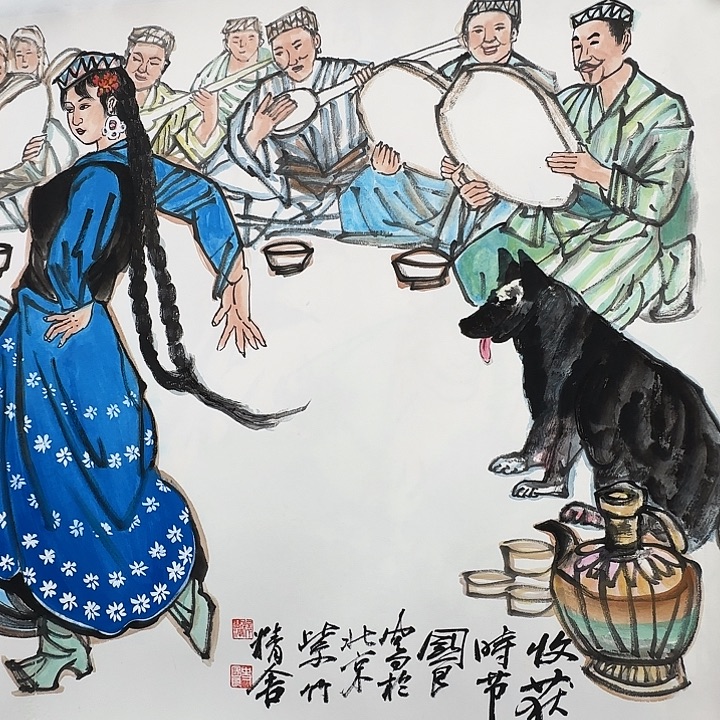 收获
时节
国良
写于
北京
紫竹
精舍